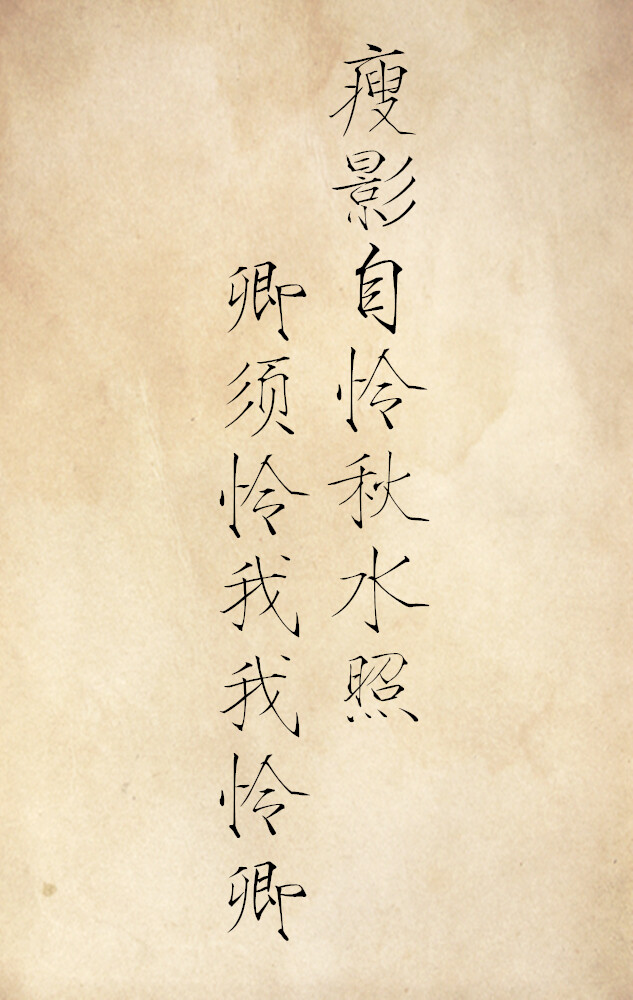 瘦影自怜秋水照
卿须怜我我怜卿